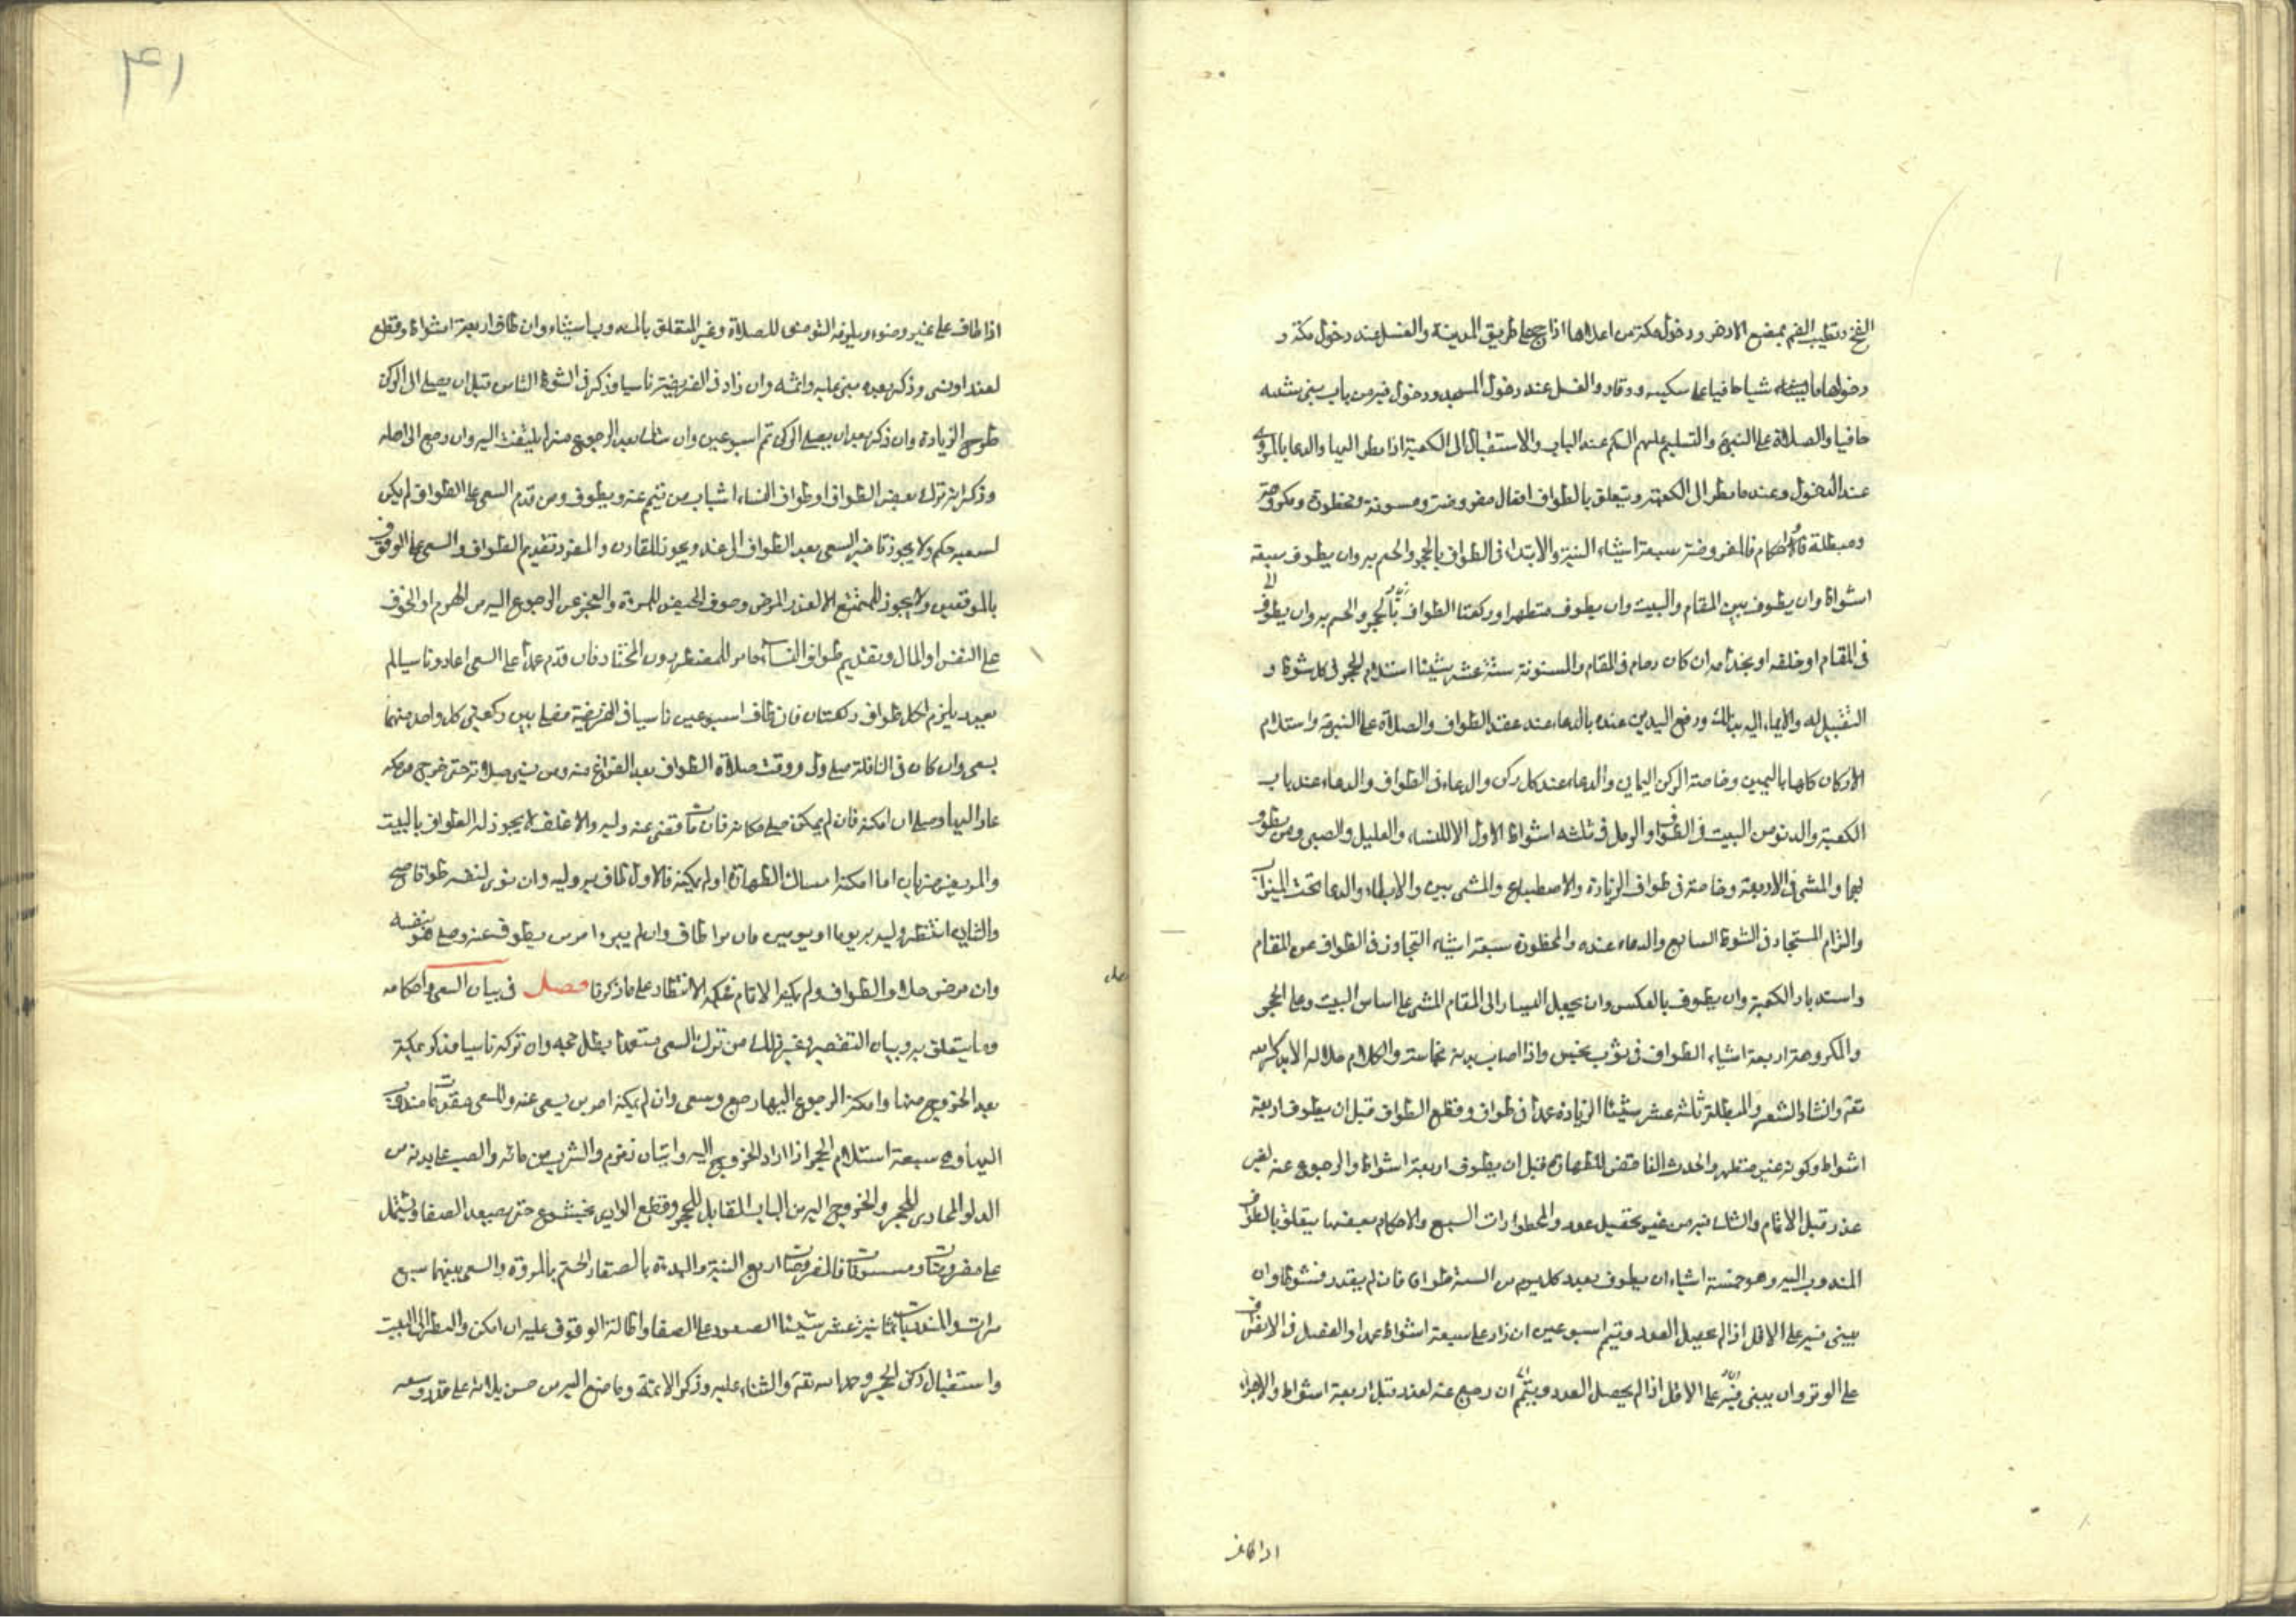 الفخ وتطيب الفم بمضغ الاذخر ودخول مكة من اعلاها اذا حج على طريق المدينة والغسل عند دخول مكة و
دخولها ماشيا حافيا على سكينه ووقار والغسل عند دخول المسجد ودخوله من باب بنى شيبه
حافيا والصلاة على النبي والتسليم عليهم السلم عند الباب والاستقبال الى الكعبة اذا نظر اليها والدعا بالمروى
عند الدخول وعند ما نظر الى الكعبة ويتعلق بالطواف افعال مفروضة ومسنونة ومحظورة ومكروهة
ومبطلة واحكام فالمفروضة سبعة اشياء النية والابتداء فى الطواف بالحجر والختم به وان يطوف سبعة
اشواط وان يطوف بين المقام والبيت وان يطوف متطهرا وركعتا الطواف بالحجر والختم به وان يطوف
فى المقام او خلفه او بحذائه ان كان زحام فى المقام والمسنونة ستة عشر شيئا استلام الحجر فى كل شوط و
التقبيل له والايماء اليه بذلك ورفع اليدين عنده بالدعاء عند عقد الطواف والصلاة على النبي واستلام
الاركان كلها باليمين وخاصة الركن اليمانى والدعاء عند كل ركن والدعاء فى الطواف والدعاء عند باب
الكعبة والدنو من البيت فى الطواف والرمل فى ثلثه اشواط الاول الا للنساء والعليل والصبى ومن يطوف
بهما والمشى فى الاربعة وخاصة فى طواف الزيارة والاضطباع والمشى بين والابطاء والدعا تحت الميزاب
والتزام المستجار فى الشوط السابع والدعاء عنده والمحظورة سبعة اشياء التجاوز فى الطواف عن المقام
واستدبار الكعبة وان يطوف بالعكس وان يجعل اليسار الى المقام المشى على اساس البيت وعلى الحجر
والمكروهة اربعة اشياء الطواف فى ثوب نجس واذا اصاب بدنه نجاسة والكلام خلاله الا بذكر الله
تعه وانشاد الشعر والمبطلة ثلثة عشر شيئا الزيادة عمدا فى طواف وقطع الطواف قبل ان يطوف اربعة
اشواط وكونه غير متطهر والحدث الناقض للطهارة قبل ان يطوف اربعة اشواط والرجوع عنه لغير
عذر قبل الاتمام والشك فيه من غير تحصيل عدد والمحظورات السبع والاحكام بعضها يتعلق بالطواف
المندوب اليه وهو خمسة اشياء ان يطوف بعدد كل يوم من السنة طوافا فان لم يقدر فشوطا وان
يبنى فيه على الاقل اذا لم يحصل العدد ويتم اسبوعين ان زاد على سبعة اشواط عمدا والفصل فى الانصراف
على الوتر وان يبنى فيه على الاقل اذا لم يحصل العدد ويتم ان رجع عنه لعذر قبل اربعة اشواط والاجزاء
اذا طاف
۴۱
اذا طاف على غير وضوء ويلزمه التوضى للصلاة وغير المتعلق بالمندوب اشياء وان طاف اربعة اشواط وقطع
لعذر او نسى وذكر بعده بنى عليه واتمه وان زاد فى الفريضة ناسيا وذكر فى الشوط الثامن قبل ان يصل الى الركن
طرح الزيادة وان ذكر بعد ان يصل الركن تم اسبوعين وان شك بعد الرجوع منه لم يلتفت اليه وان رجع الى اهله
وذكر انه ترك بعض الطواف او طواف النساء استناب من يتمم عنه ويطوف ومن قدم السعى على الطواف لم يكن
لسعيه حكم ولا يجوز تاخير السعى بعد الطواف الى غد ويجوز للقارن والمفرد تقديم الطواف والسعى على الوقوف
بالموقفين ولا يجوز للمتمتع الا لعذر المرض وخوف الحيض للمرءة والعجز عن الرجوع اليه من الهرم او الخوف
على النفس او المال وتقديم طواف النساء جائز للمضطر دون المختار فان قدم عمدا على السعى اعاد وناسيا لم
يعد يلزم لكل طواف ركعتان فان طاف اسبوعين ناسيا فى الفريضة فصل بين ركعتى كل واحد منهما
بسعى وان كان فى النافلة صلى ولى ووقت صلاة الطواف بعد الفراغ منه ومن نسى صلاته حتى خرج من مكه
عاد اليها وصلى ان امكنه فان لم يمكن صلى مكانه فان مات قضى عنه وليه والاغلف لا يجوز له الطواف بالبيت
والمريض ضربان اما امكنه امساك الطهارة او لم يمكنه فالاول طاف به وليه وان نوى لنفسه طوافا صح
والثانى انتظر وليه به يوما او يومين فان برا طاف وان لم يبرء امر من يطوف عنه وصلى هو بنفسه
وان مرض خلال الطواف ولم يمكنه الاتمام فحكمه الانتظار على ما ذكرنا فصل فى بيان السعى واحكامه
وما يتعلق به وبيان التقصير وغير ذلك من ترك السعى متعمدا بطل حجه وان تركه ناسيا فذكر بمكة
بعد الخروج منها وامكنه الرجوع اليها رجع وسعى وان لم يمكنه امر من يسعى عنه وللسعى مقدمات مندوب
اليها وهى سبعة استلام الحجر اذا اراد الخروج اليه واتيان زمزم والشرب من مائه والصب على بدنه من
الدلو المحاذى للحجر والخروج اليه من الباب المقابل للحجر وقطع الوادى بخشوع حتى يصعد الصفا ويشتمل
على مفروضات ومسنونات فالمفروضات اربع النية والبدءة بالصفا والختم بالمروة والسعى بينهما سبع
مرات والمندوبات ثمانية عشر شيئا الصعود على الصفا واطالة الوقوف عليه ان امكن والنظر الى البيت
واستقبال ركن الحجر وحمد الله تعه والثناء عليه وذكر الائمة وما صنع اليه من حسن بلائه على قدر وسعه